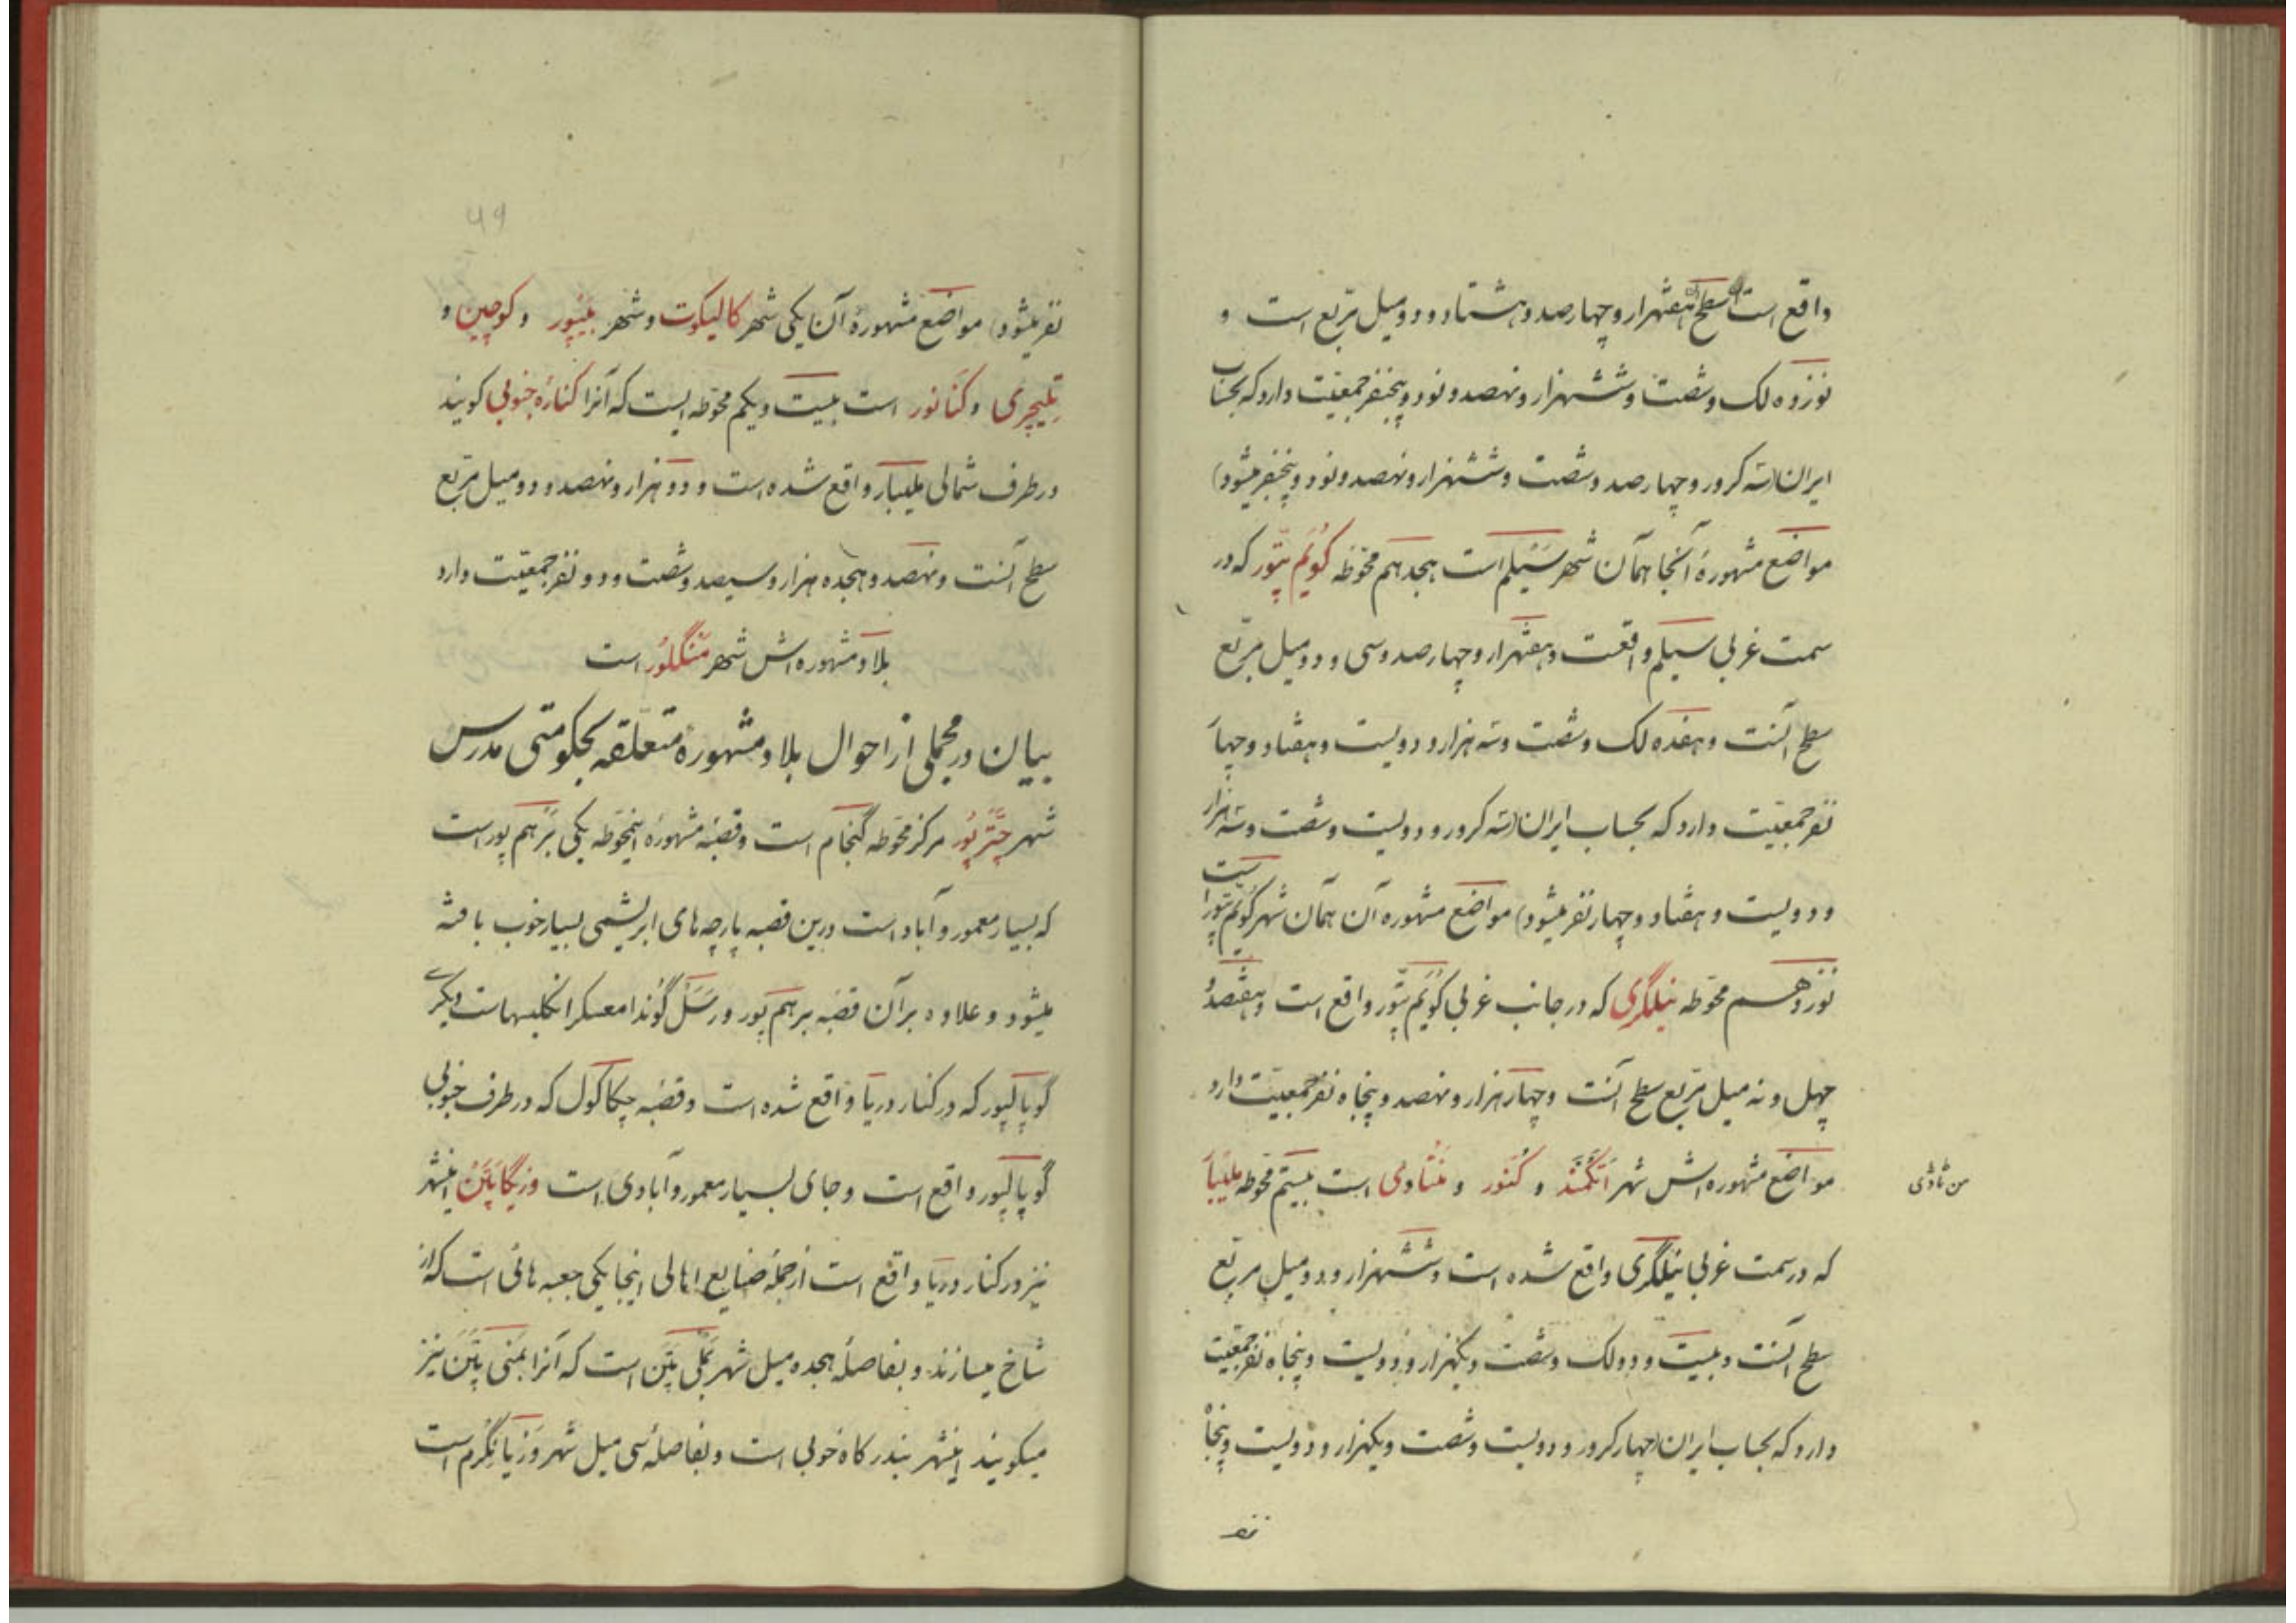 واقع است سطح آن هفتهزار و چهارصد و هشتاد و دو میل مربع است و
نوزده لک و شصت و ششهزار و نهصد و نود و پنجنفر جمعیت دارد که بحساب
ایران (سه کرور و چهارصد و شصت و ششهزار و نهصد و نود و پنجنفر میشود)
مواضع مشهورهٔ آنجا همان شهر سیلم است هیجدهم محوطه کویم پتور که در
سمت غربی سیلم واقعست و هفتهزار و چهارصد و سی و دو میل مربع
سطح آنست و هفده لک و شصت و سه هزار و دویست و هفتاد و چهار
نفر جمعیت دارد که بحساب ایران (سه کرور و دویست و شصت و سه هزار
و دویست و هفتاد و چهار نفر میشود) مواضع مشهوره آن همان شهر کویم پتور است
نوزدهم محوطه نیلگری که در جانب غربی کویم پتور واقع است و هفتصد و
چهل و نه میل مربع سطح آنست و چهار هزار و نهصد و پنجاه نفر جمعیت دارد
مواضع مشهوره اش شهر اتکمند و کنور و است بیستم محوطه ملیبار
که در سمت غربی نیلگری واقع شده است و ششهزار و دو میل مربع
سطح آنست و بیست و دو لک و شصت و یکهزار و دویست و پنجاه نفر جمعیت
دارد که بحساب ایران (چهار کرور و دویست و شصت و یکهزار و دویست و پنجاه
نفر
۴۹
نفر میشود) مواضع مشهورهٔ آن یکی شهر کالیکوت و شهر بیپور و کوچین و
تلیچری و کنانور است بیست و یکم محوطه ایست که آنرا کنارهٔ جنوبی گویند
در طرف شمالی ملیبار واقع شده است و دو هزار و نهصد و دو میل مربع
سطح آنست و نهصد و هیجده هزار و سیصد و شصت و دو نفر جمعیت دارد
بلاد مشهوره اش شهر منگلور است
بیان در مجملی از احوال بلاد مشهورهٔ متعلقه بحکومتی مدرس
شهر چترپور مرکز محوطه گنجام است و قصبهٔ مشهورهٔ اینمحوطه یکی برهم پور است
که بسیار معمور و آباد است درین قصبه پارچه های ابریشمی بسیار خوب بافته
میشود و علاوه بر آن قصبه برهم پور و رسل گوندا معسکر انکلیسهاست دیگری
گوپالپور که در کنار دریا واقع شده است و قصبه چیکاکول که در طرف جنوبی
گوپالپور واقع است و جای بسیار معمور و آبادی است وزیگاپتن اینشهر
نیز در کنار دریا واقع است از جملهٔ صنایع اهالی اینجا یکی جعبه هائی است که از
شاخ میسازند و بفاصلهٔ هجده میل شهر بملی پتن است که آنرا بمنی پتن نیز
میگویند اینشهر بندرگاه خوبی است و بفاصلهٔ سی میل شهر وزیانگرم است